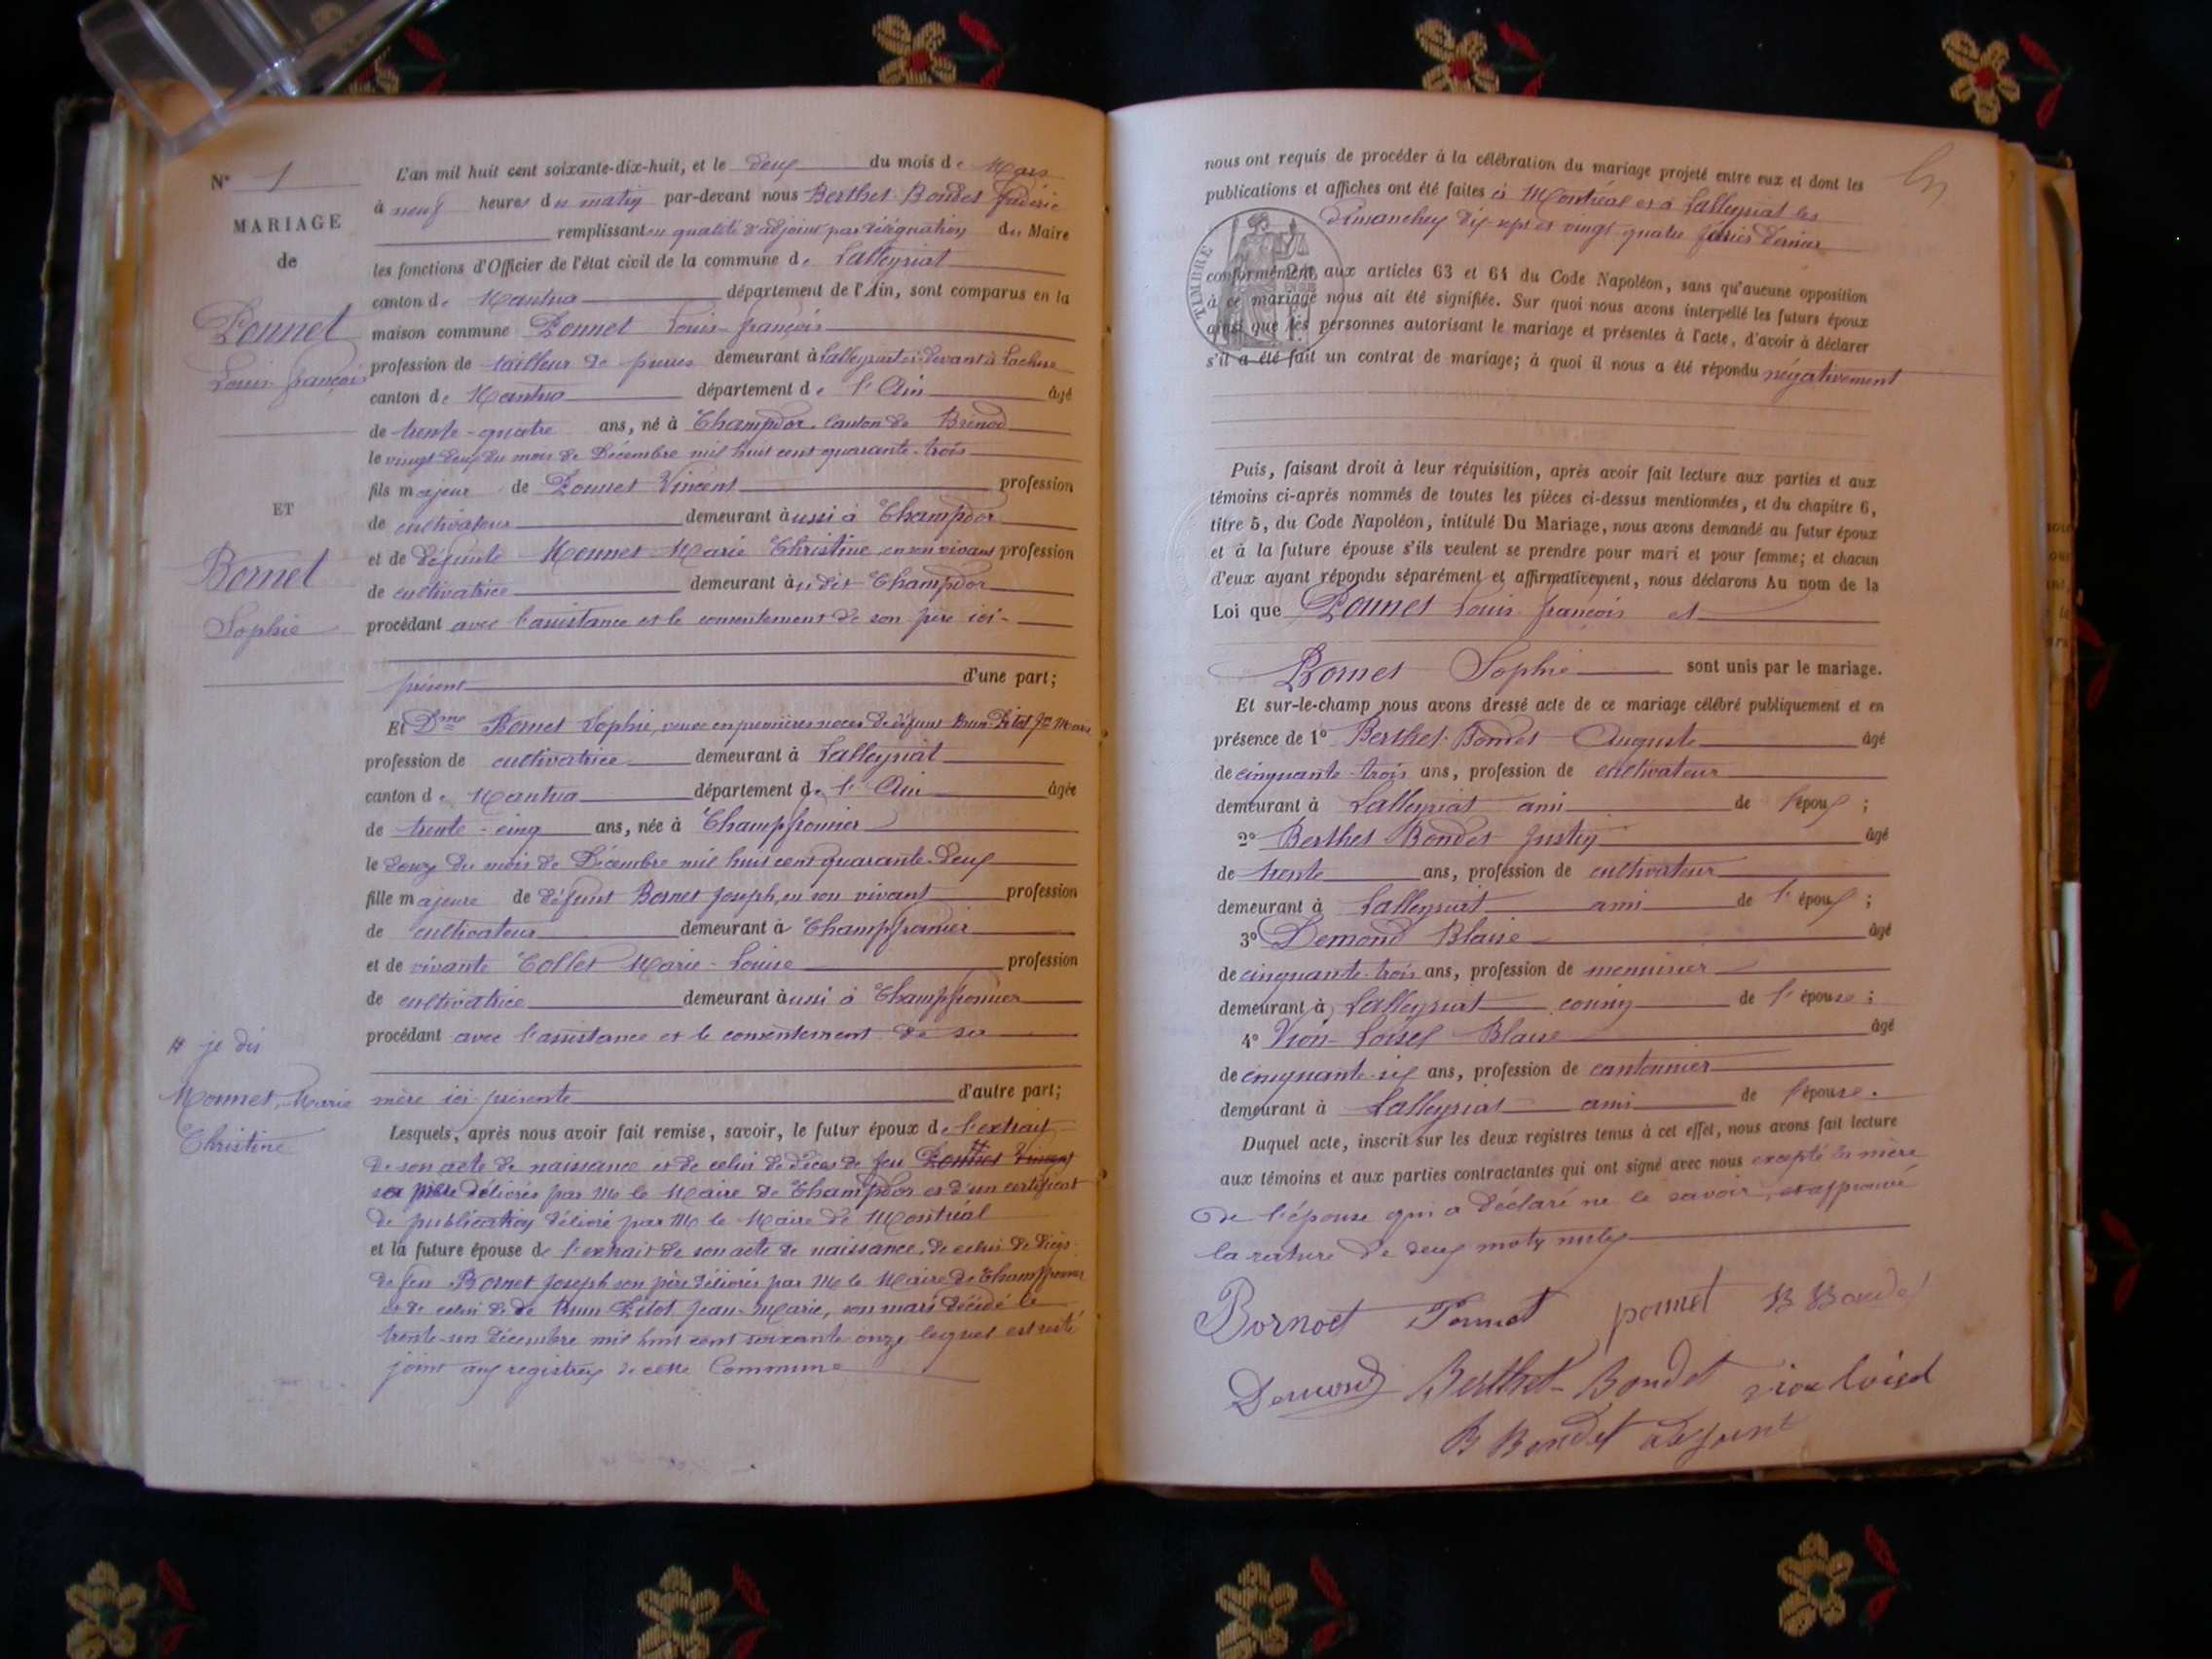 N° 1
MARIAGE
de
Ponnet
Louis-françois
ET
Bornet
Sophie
# je dis
Monnet, Marie
Christine
L'an mil huit cent soixante-dix-huit, et le deux du mois de Mars
à neuf heures du matin par-devant nous Berthet-Bondet frédéric
remplissant en qualité d'adjoint par délégation du Maire
les fonctions d'Officier de l'état civil de la commune de Lalleyriat
canton de Nantua département de l'Ain, sont comparus en la
maison commune Ponnet Louis-françois
profession de tailleur de pierres demeurant à Lalleyriat ci-devant à Lacluse
canton de Nantua département de l'Ain âgé
de trente-quatre ans, né à Champdor, canton de Brénod
le vingt deux du mois de Décembre mil huit cent quarante-trois
fils majeur de Ponnet Vincent profession
de cultivateur demeurant aussi à Champdor
et de défunte Monnet Marie Christine, en son vivant profession
de cultivatrice demeurant au dit Champdor
procédant avec l'assistance et le consentement de son père ici-
présent d'une part;
Et Dme Bornet Sophie, veuve en premières noces de défunt Brun-Pélot Jn Marie
profession de cultivatrice demeurant à Lalleyriat
canton de Nantua département de l'Ain âgée
de trente-cinq ans, née à Champfromier
le douze du mois de Décembre mil huit cent quarante-deux
fille majeure de défunt Bornet Joseph, en son vivant profession
de cultivateur demeurant à Champfromier
et de vivante Collet Marie-Louise profession
de cultivatrice demeurant aussi à Champfromier
procédant avec l'assistance et le consentement de sa
mère ici présente d'autre part;
Lesquels, après nous avoir fait remise, savoir, le futur époux de l'extrait
de son acte de naissance et de celui de décès de feu Ponnet Vincent #
sa mère délivrés par Mr le Maire de Champdor et d'un certificat
de publication délivré par Mr le Maire de Montréal
et la future épouse de l'extrait de son acte de naissance, de celui de décès
de feu Bornet Joseph son père délivrés par Mr le Maire de Champfromier
et de celui de de Brun-Pélot Jean-Marie, son mari décédé le
trente-un décembre mil huit cent soixante onze lequel est resté
joint aux registres de cette Commune
nous ont requis de procéder à la célébration du mariage projeté entre eux et dont les
publications et affiches ont été faites à Montréal et à Lalleyriat les
dimanches dix-sept et vingt quatre février dernier
TIMBRE
conformément aux articles 63 et 64 du Code Napoléon, sans qu'aucune opposition
à ce mariage nous ait été signifiée. Sur quoi nous avons interpellé les futurs époux
ainsi que les personnes autorisant le mariage et présentes à l'acte, d'avoir à déclarer
s'il a été fait un contrat de mariage; à quoi il nous a été répondu négativement
Puis, faisant droit à leur réquisition, après avoir fait lecture aux parties et aux
témoins ci-après nommés de toutes les pièces ci-dessus mentionnées, et du chapitre 6,
titre 5, du Code Napoléon, intitulé Du Mariage, nous avons demandé au futur époux
et à la future épouse s'ils veulent se prendre pour mari et pour femme; et chacun
d'eux ayant répondu séparément et affirmativement, nous déclarons Au nom de la
Loi que Ponnet Louis françois et
Bornet Sophie sont unis par le mariage.
Et sur-le-champ nous avons dressé acte de ce mariage célébré publiquement et en
présence de 1° Berthet-Bondet Auguste âgé
de cinquante-trois ans, profession de cultivateur
demeurant à Lalleyriat ami de l'époux;
2° Berthet-Bondet Justin âgé
de trente ans, profession de cultivateur
demeurant à Lalleyriat ami de l'époux;
3° Demond Blaise âgé
de cinquante-trois ans, profession de menuisier
demeurant à Lalleyriat cousin de l'épouse;
4° Vion-Loisel Blaise âgé
de cinquante-six ans, profession de cantonnier
demeurant à Lalleyriat ami de l'épouse.
Duquel acte, inscrit sur les deux registres tenus à cet effet, nous avons fait lecture
aux témoins et aux parties contractantes qui ont signé avec nous excepté la mère
de l'épouse qui a déclaré ne le savoir, et approuvé
la rature de deux mots nuls
Bornet Ponnet ponnet B Bondet
Demond Berthet-Bondet vion loisel
B Bondet adjoint